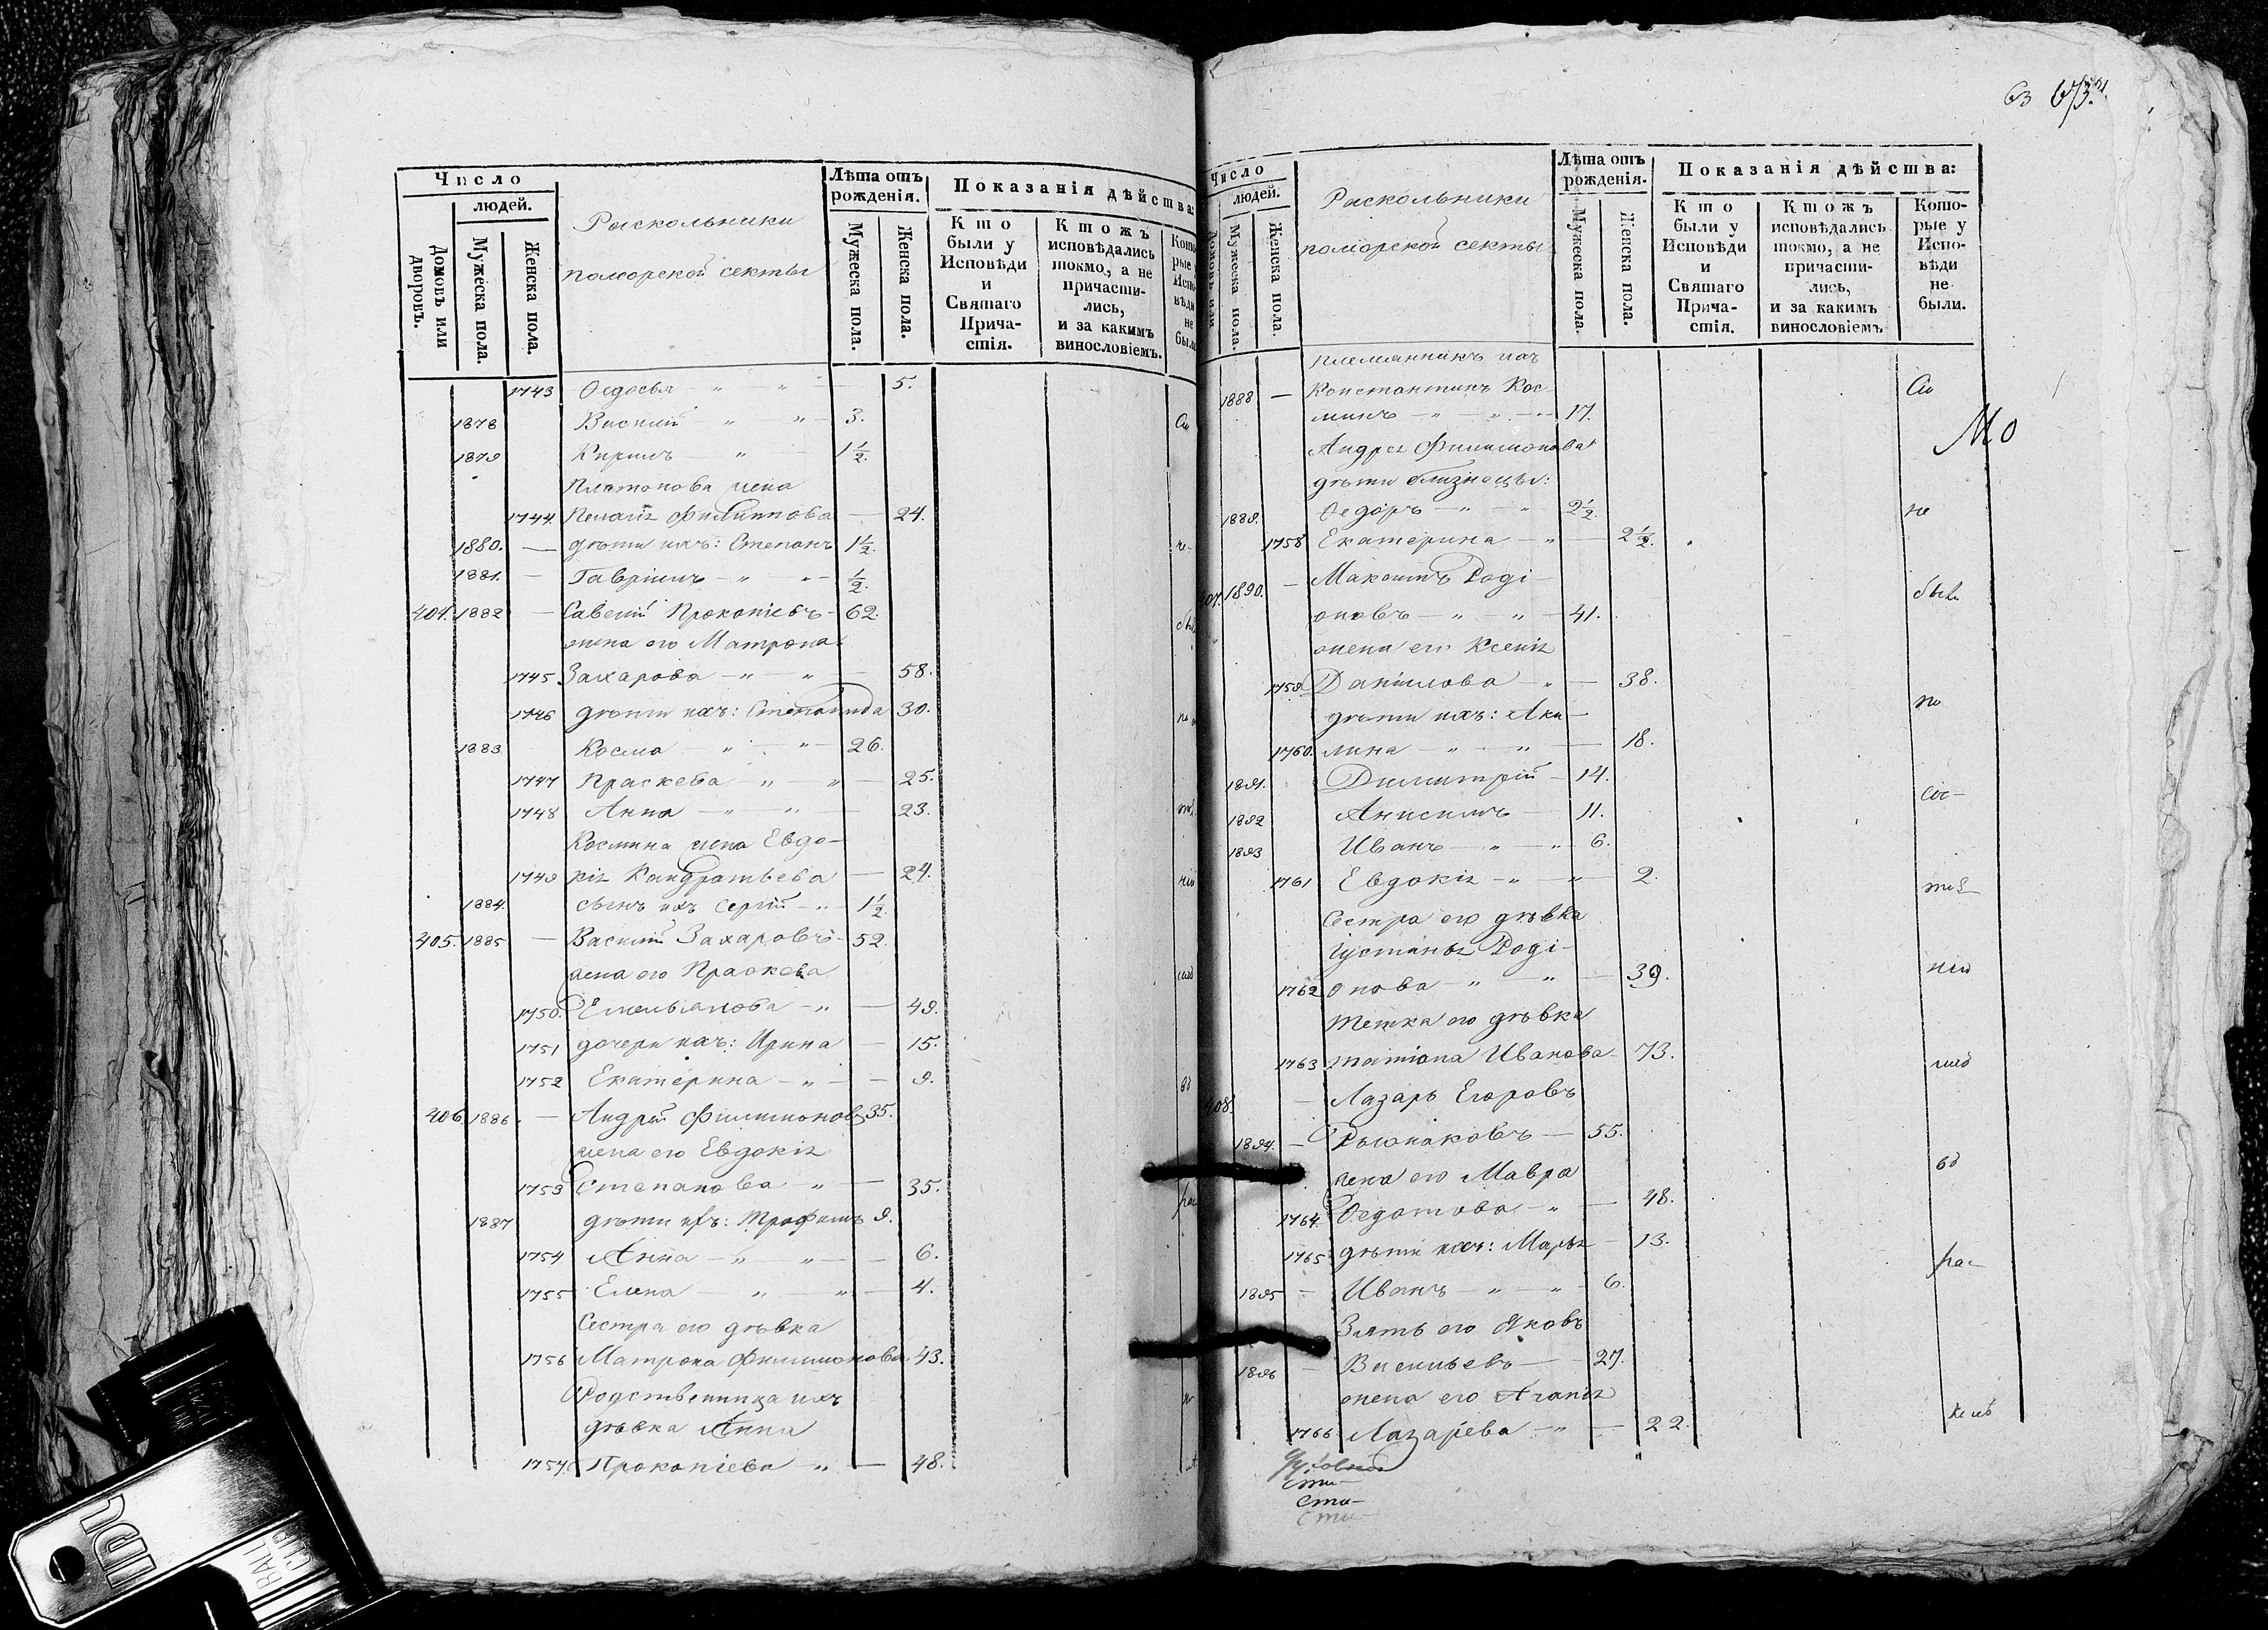 63 673.
Число
людей.
Домовъ или дворовъ.
Мужеска пола.
Женска пола.
Раскольники
поморской секты
Лѣта отъ рожденія.
Мужеска пола.
Женска пола.
Показанія дѣйства:
Кто были у Исповѣди и Святаго Причастія.
Ктожъ исповѣдались токмо, а не причастились, и за какимъ винословіемъ.
Которые у Исповѣди не были.
1743 Ѳедосья — „ — „ — 5.
1878 Василій — „ — „ — 3.
1879 Кирилъ — „ — 1½.
Платонова жена
1744. Пелагія Филиппова — 24.
1880. — дѣти ихъ: Степанъ 1½.
1881. — Гавріилъ — „ — „ — ½.
404. 1882 — Савелій Прокопіевъ — 62.
жена его Матрона
1745 Захарова — „ — „ — 58.
1746 дѣти ихъ: Степанида 30.
1883 Косма — „ — „ — 26.
1747 Праскева — „ — „ — 25.
1748 Анна — „ — „ — 23.
Космина жена Евдо-
1749 кія Кандратьева — 24.
1884. сынъ ихъ Сергій — „ — 1½.
405. 1885 — Василій Захаровъ — 52.
жена его Праскева
1750. Емельянова — „ — 49.
1751 дочери ихъ: Ирина — 15.
1752 Екатерина — „ — 9.
406. 1886. — Андрей Филимоновъ 35.
жена его Евдокія
1753 Степанова — „ — 35.
1887 дѣти ихъ: Трофимъ 9.
1754 Анна — „ — „ — 6.
1755 Елена — „ — „ — 4.
Сестра его дѣвка
1756 Матрона Филимонова 43.
Родственница ихъ
дѣвка Анна
1757. Прокопіева — „ — 48.
Число
людей.
Мужеска пола.
Женска пола.
Раскольники
поморской секты
Лѣта отъ рожденія.
Мужеска пола.
Женска пола.
Показанія дѣйства:
Кто были у Исповѣди и Святаго Причастія.
Ктожъ исповѣдались токмо, а не причастились, и за какимъ винословіемъ
Которые у Исповѣди не были.
племянникъ ихъ
1888 — Константинъ Кос-
минъ — „ — „ — 17.
Андрея Филимонова
дѣти близнецы:
1889. Ѳедоръ — „ — „ 2½. не
1758 Екатерина — „ — 2½.
407. 1890. — Максимъ Роді-
оновъ — „ — „ — 41.
жена его Ксенія
1759 Данилова — „ — 38.
дѣти ихъ: Аки- по
1760. лина — „ — „ — 18.
1891. Димитрій — 14.
1892 Анисимъ — 11.
1893 Иванъ — „ — „ 6.
1761 Евдокія — „ — „ — 2.
Сестра его дѣвка
Іустинья Роді-
1762 онова — „ — „ — 39.
тетка его дѣвка
1763 татіана Иванова — 73.
408. — Лазарь Егоровъ
1894. — 55.
жена его Мавра
1764. Ѳедотова — „ — 48.
1765 дѣти ихъ: Марья — 13.
1895 — Иванъ — „ — „ — 6. рас-
Зять его Яковъ
1896 — Васильевъ — 27.
жена его Аганія
1766 Лазарева — „ — 22.